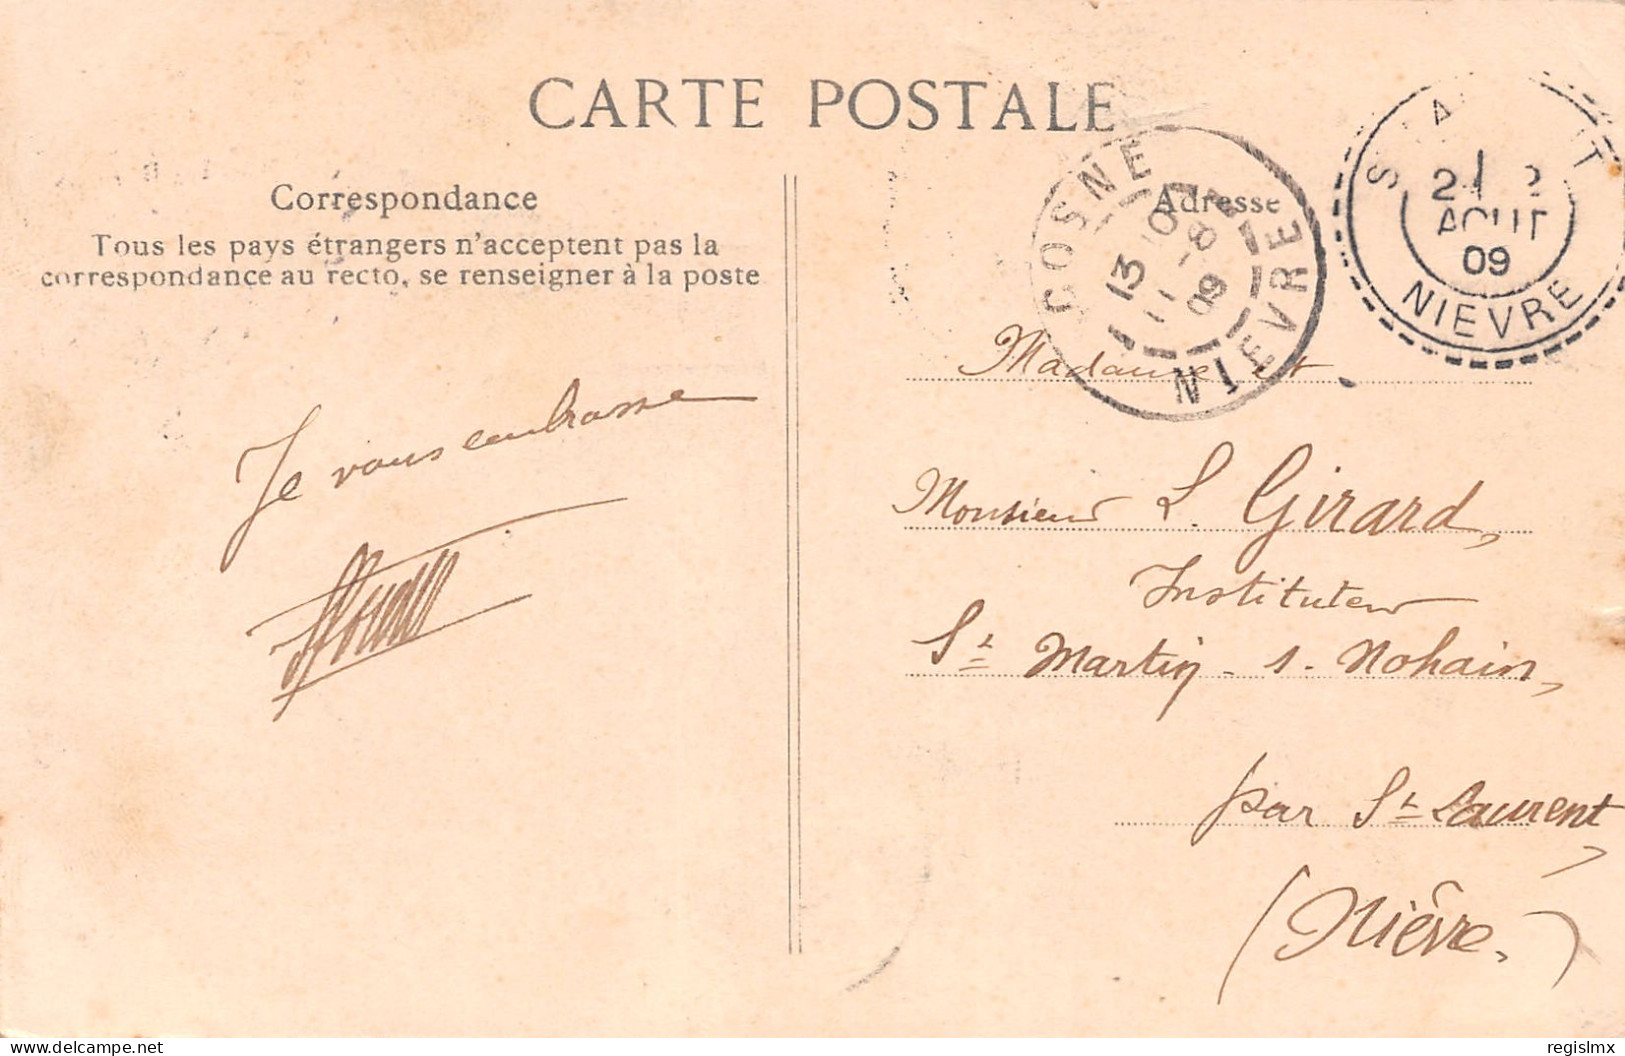 CARTE POSTALE
Correspondance
Tous les pays étrangers n'acceptent pas la
correspondance au recto, se renseigner à la poste
Je vous embrasse
Adresse
COSNE
13
8
09
NIEVRE
AOUT
09
NIEVRE
Madame et
Monsieur L. Girard,
Instituteur
St Martin-s.-Nohain,
par St Laurent,
(Nièvre.)
delcampe.net
regislmx